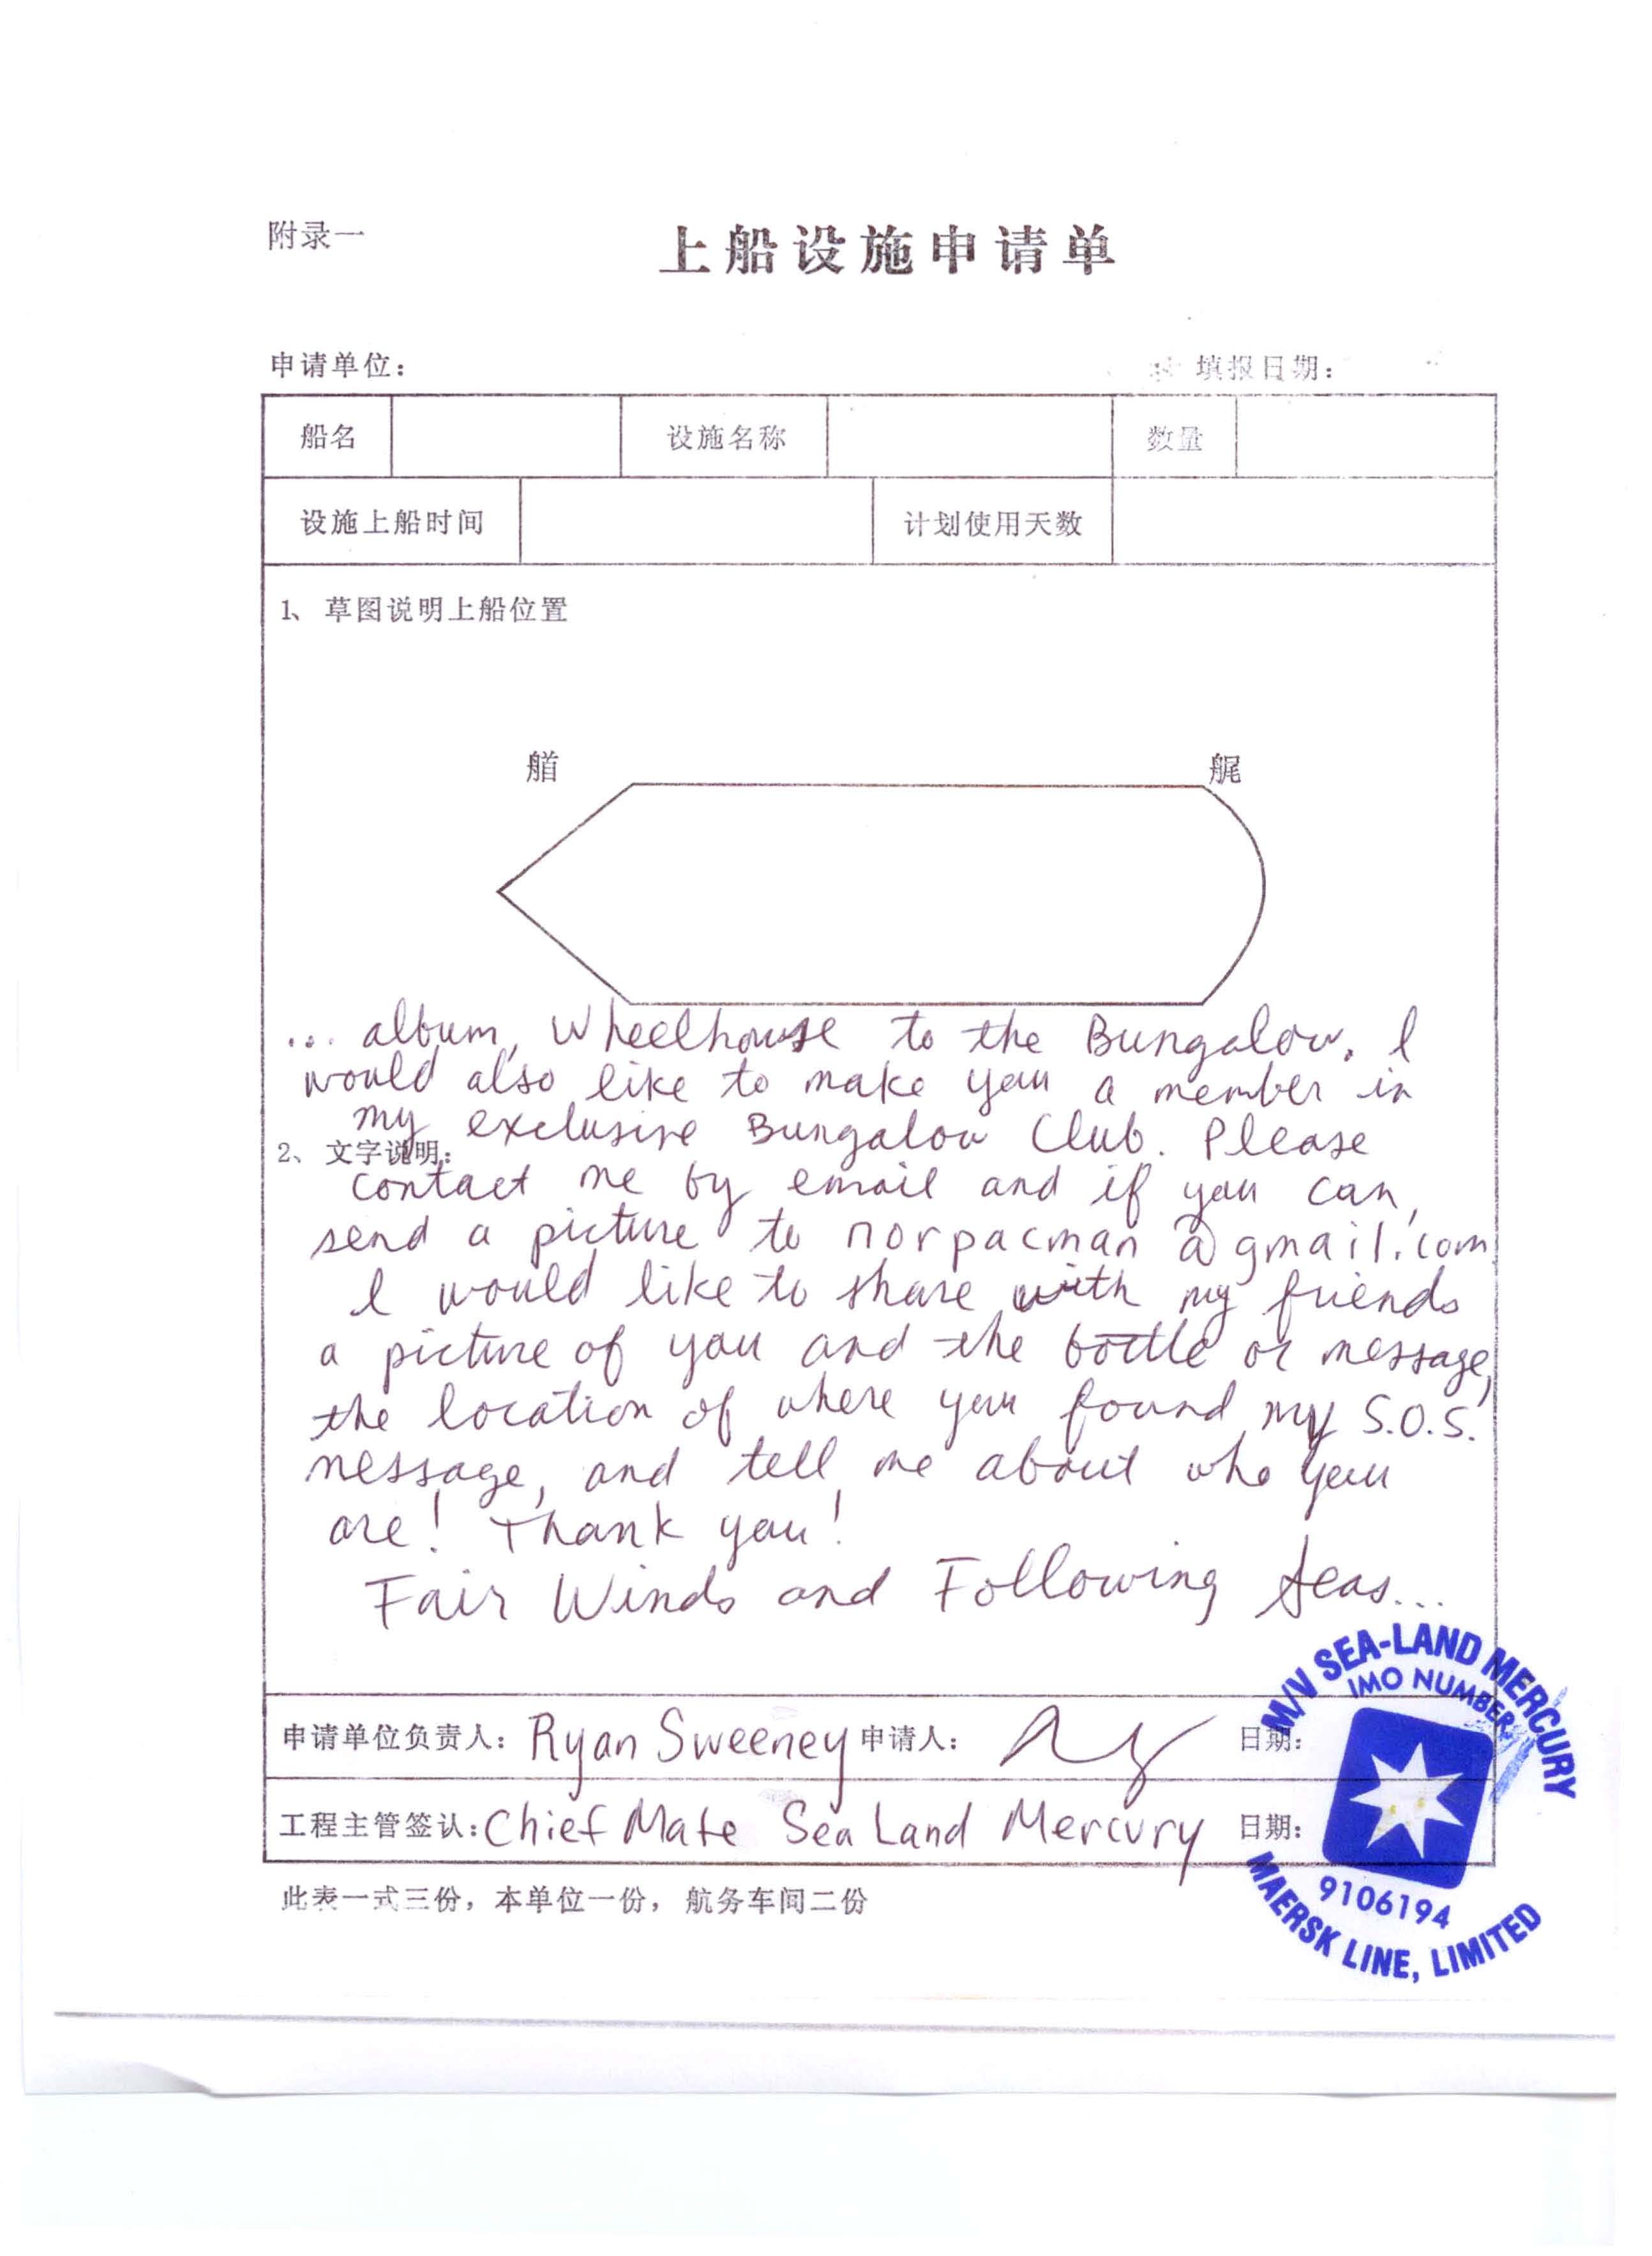 附录一
上船设施申请单
申请单位：
填报日期：
船名 设施名称 数量
设施上船时间 计划使用天数
1、草图说明上船位置
艏 艉
... album, Wheelhouse to the Bungalow. I
would also like to make you a member in
my exclusive Bungalow Club. Please
2、文字说明：
contact me by email and if you can,
send a picture to norpacman@gmail.com
I would like to share with my friends
a picture of you and the bottle or message,
the location of where you found my S.O.S.
message, and tell me about who you
are! Thank you!
Fair Winds and Following Seas...
申请单位负责人：Ryan Sweeney 申请人： 日期：
工程主管签认：Chief Mate Sea Land Mercury 日期：
此表一式三份，本单位一份，航务车间二份
M/V SEA-LAND MERCURY
IMO NUMBER
9106194
MAERSK LINE, LIMITED